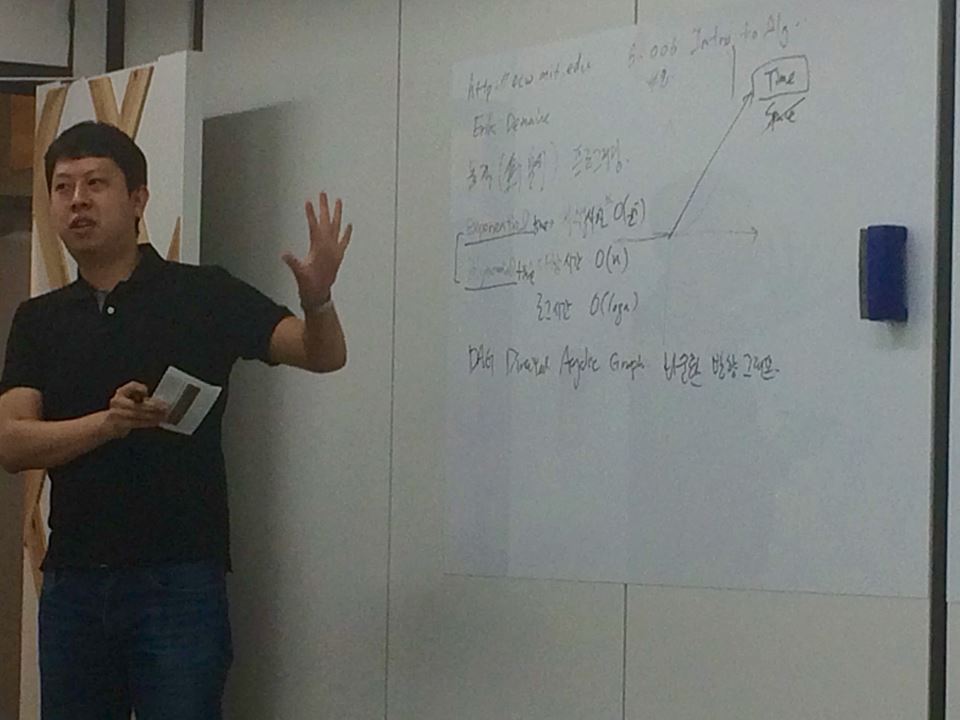 http://ocw.mit.edu 6.006 Intro to Alg..
Time
Space
Erik Demaine
동적 (動的) 프로그래밍.
Exponential time 지수시간 O(2ⁿ)
Polynomial time 다항시간 O(n)
로그시간 O(logn)
DAG Directed Acyclic Graph 비순환 방향 그래프.